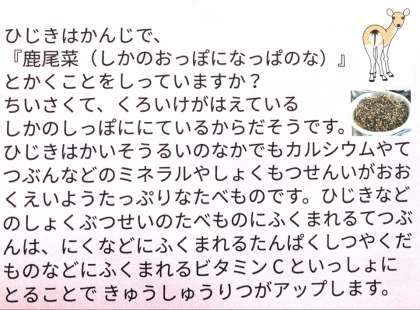 ひじきはかんじで、
『鹿尾菜（しかのおっぽになっぱのな）』
とかくことをしっていますか？
ちいさくて、くろいけがはえている
しかのしっぽににているからだそうです。
ひじきはかいそうるいのなかでもカルシウムやて
つぶんなどのミネラルやしょくもつせんいがおお
くえいようたっぷりなたべものです。ひじきなど
のしょくぶつせいのたべものにふくまれるてつぶ
んは、にくなどにふくまれるたんぱくしつやくだ
ものなどにふくまれるビタミンＣといっしょに
とることで きゅうしゅうりつがアップします。